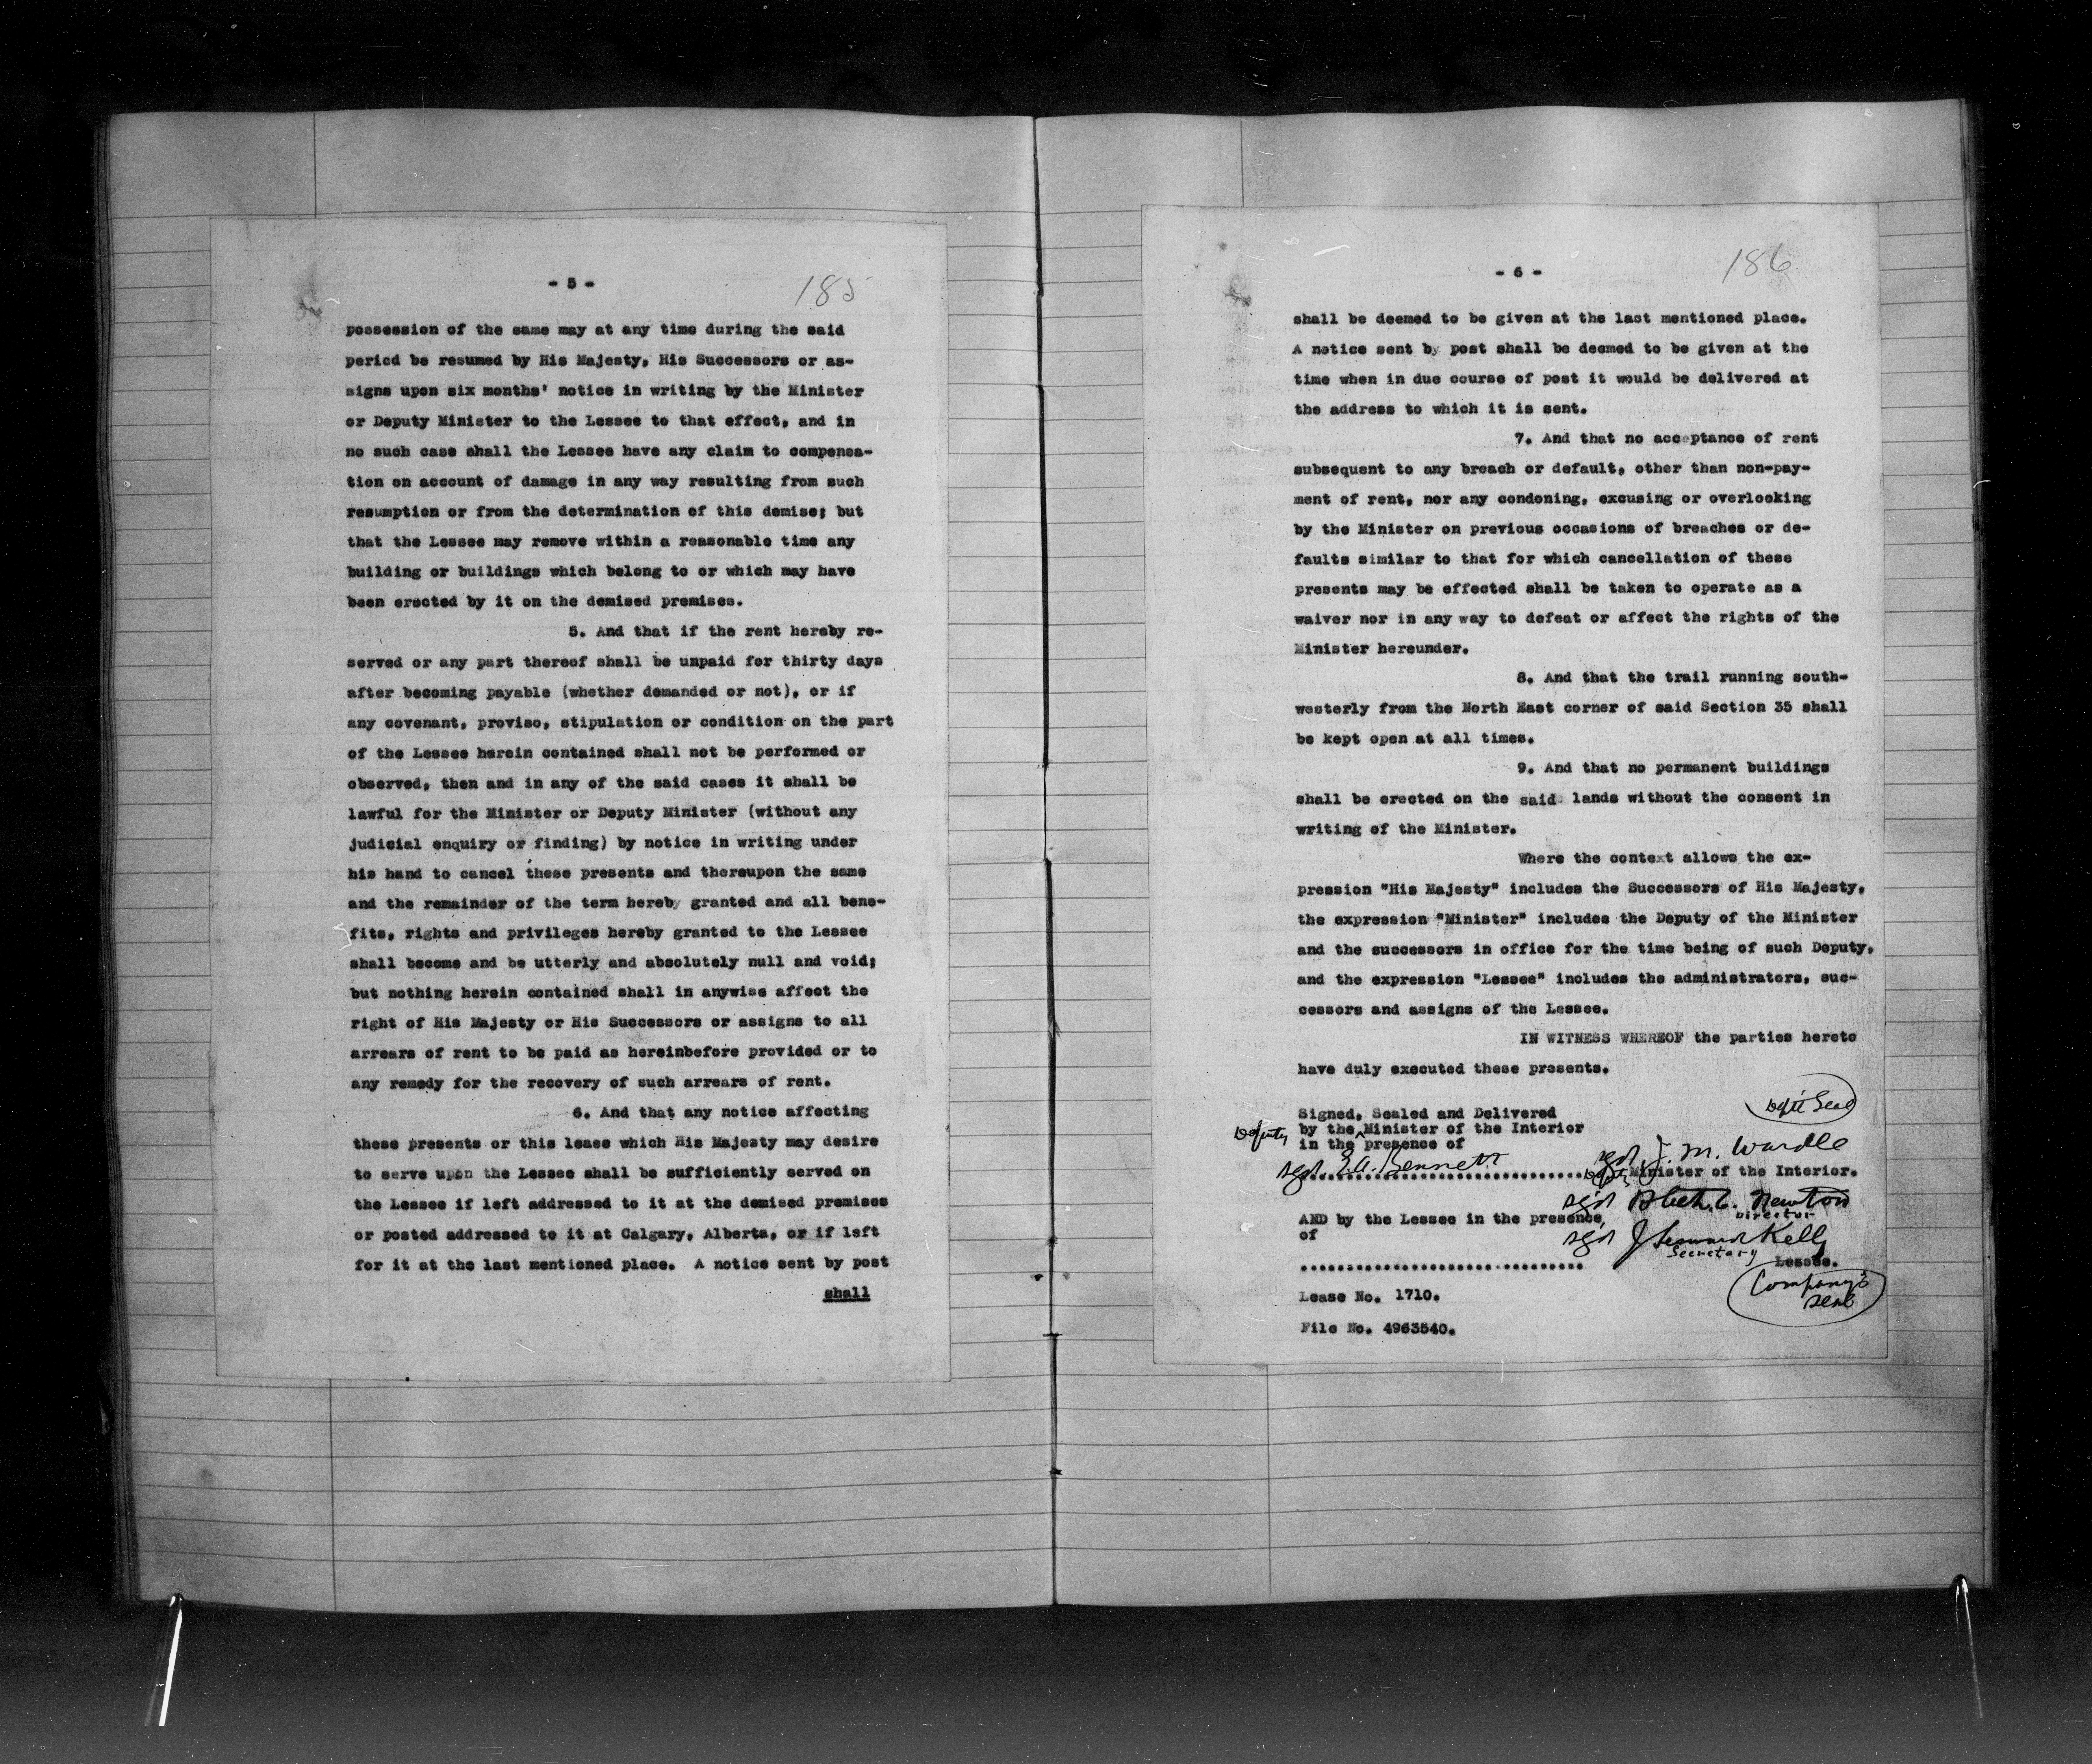 - 5 -
185
possession of the same may at any time during the said
period be resumed by His Majesty, His Successors or as-
signs upon six months' notice in writing by the Minister
or Deputy Minister to the Lessee to that effect, and in
no such case shall the Lessee have any claim to compensa-
tion on account of damage in any way resulting from such
resumption or from the determination of this demise; but
that the Lessee may remove within a reasonable time any
building or buildings which belong to or which may have
been erected by it on the demised premises.
5. And that if the rent hereby re-
served or any part thereof shall be unpaid for thirty days
after becoming payable (whether demanded or not), or if
any covenant, proviso, stipulation or condition on the part
of the Lessee herein contained shall not be performed or
observed, then and in any of the said cases it shall be
lawful for the Minister or Deputy Minister (without any
judicial enquiry or finding) by notice in writing under
his hand to cancel these presents and thereupon the same
and the remainder of the term hereby granted and all bene-
fits, rights and privileges hereby granted to the Lessee
shall become and be utterly and absolutely null and void;
but nothing herein contained shall in anywise affect the
right of His Majesty or His Successors or assigns to all
arrears of rent to be paid as hereinbefore provided or to
any remedy for the recovery of such arrears of rent.
6. And that any notice affecting
these presents or this lease which His Majesty may desire
to serve upon the Lessee shall be sufficiently served on
the Lessee if left addressed to it at the demised premises
or posted addressed to it at Calgary, Alberta, or if left
for it at the last mentioned place. A notice sent by post
shall
- 6 -
186
shall be deemed to be given at the last mentioned place.
A notice sent by post shall be deemed to be given at the
time when in due course of post it would be delivered at
the address to which it is sent.
7. And that no acceptance of rent
subsequent to any breach or default, other than non-pay-
ment of rent, nor any condoning, excusing or overlooking
by the Minister on previous occasions of breaches or de-
faults similar to that for which cancellation of these
presents may be effected shall be taken to operate as a
waiver nor in any way to defeat or affect the rights of the
Minister hereunder.
8. And that the trail running south-
westerly from the North East corner of said Section 35 shall
be kept open at all times.
9. And that no permanent buildings
shall be erected on the said lands without the consent in
writing of the Minister.
Where the context allows the ex-
pression "His Majesty" includes the Successors of His Majesty,
the expression "Minister" includes the Deputy of the Minister
and the successors in office for the time being of such Deputy,
and the expression "Lessee" includes the administrators, suc-
cessors and assigns of the Lessee.
IN WITNESS WHEREOF the parties hereto
have duly executed these presents.
Dept Seal
Signed, Sealed and Delivered
by the Deputy Minister of the Interior
in the presence of
sgd. E.A. Bennett
sgd J. M. Wardle
Deputy Minister of the Interior.
sgd C. Newton
Director
AND by the Lessee in the presence
of
sgd J Kelly
Secretary
Lessee.
Company's
seal
Lease No. 1710.
File No. 4963540.